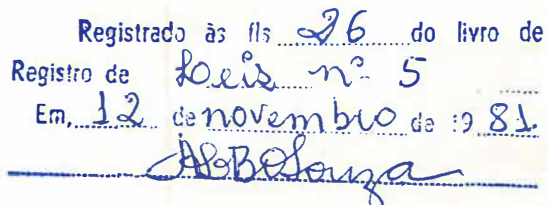 Registrado às fls 26 do livro de
Registro de Leis nº 5
Em, 12 de novembro de 1981.